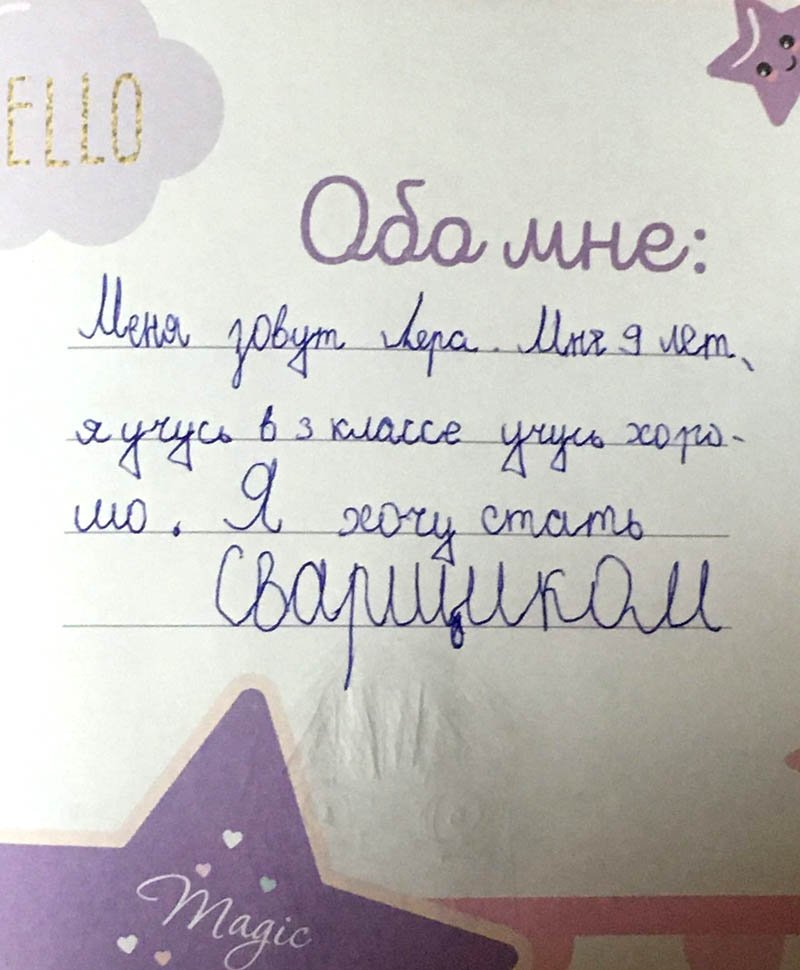 ELLO
Обо мне:
Меня зовут Лера. Мне 9 лет,
я учусь в 3 классе учусь хоро-
шо. Я хочу стать
сварщиком
Magic